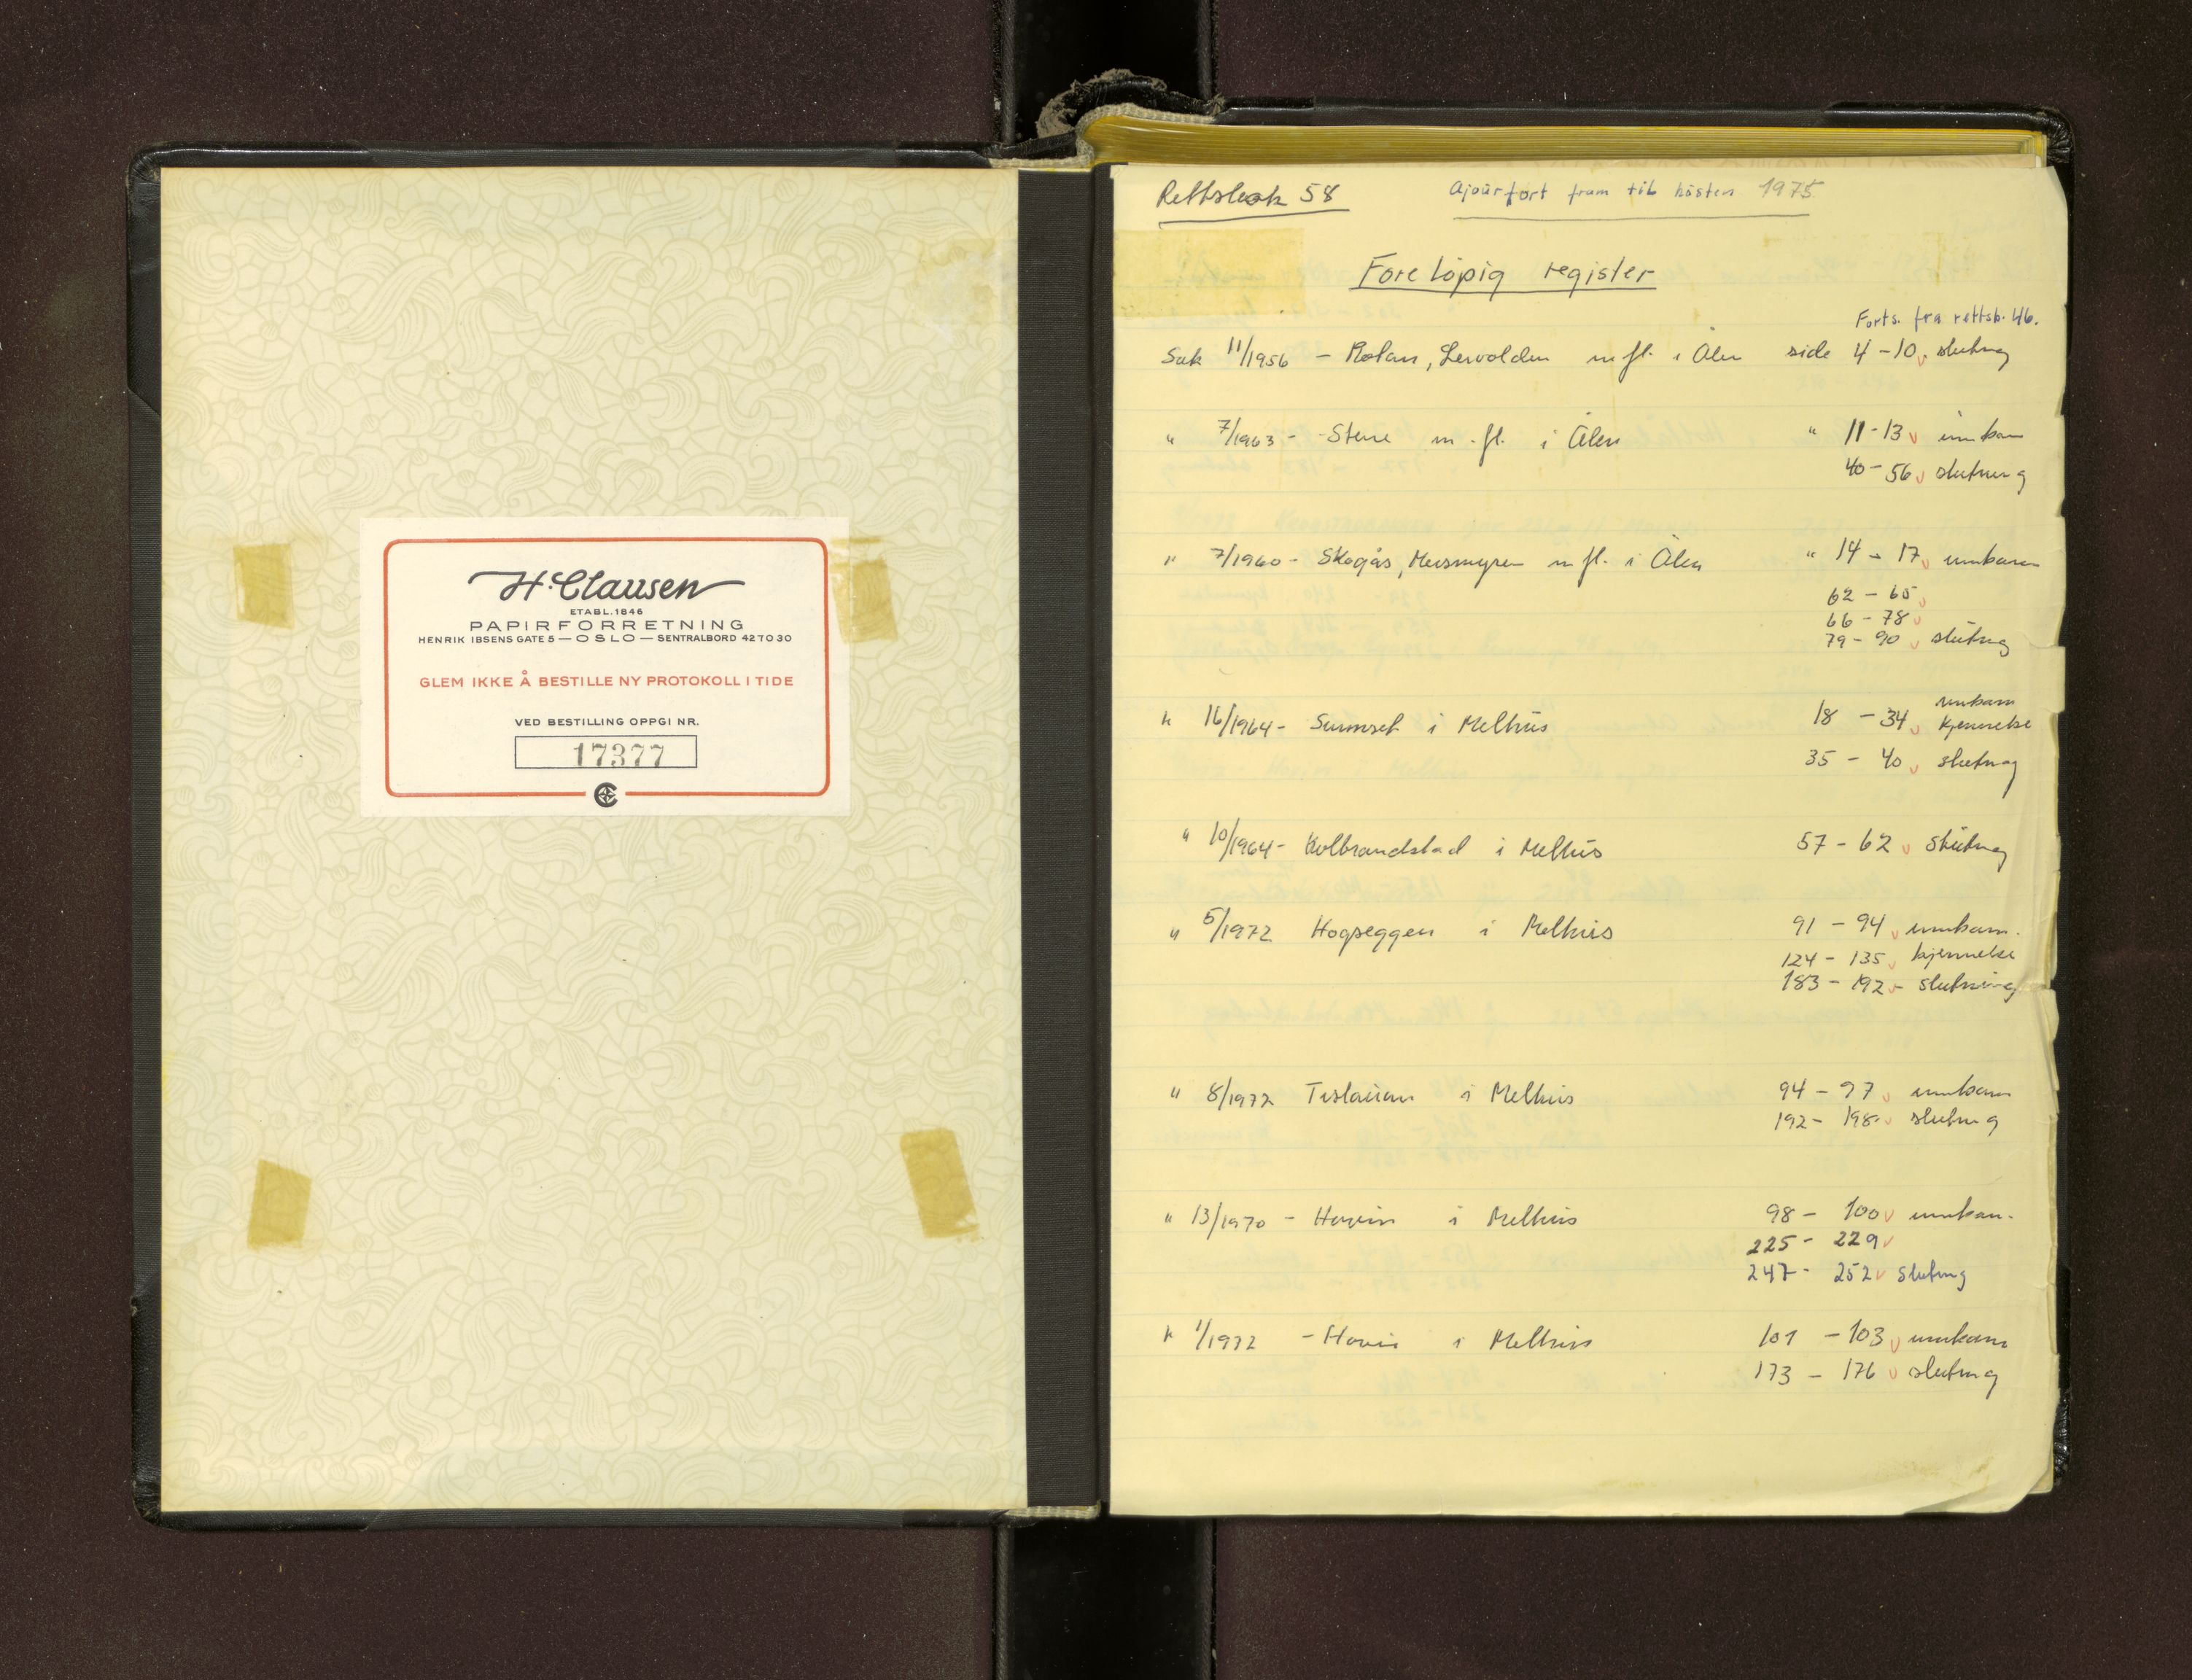 H. Clausen
ETABL. 1846
PAPIRFORRETNING
HENRIK IBSENS GATE 5 — OSLO — SENTRALBORD 42 70 30
GLEM IKKE Å BESTILLE NY PROTOKOLL I TIDE
VED BESTILLING OPPGI NR.
17377
Rettsbok 58 Ajourført fram til høsten 1975
Foreløpig register
Forts. fra rettsb. 46.
Sak 11/1956 - m fl. i Ålen side 4-10 slutning
" 7/1963 - Stene m. fl. i Ålen " 11-13 innkom
40-56 slutning
" 7/1960 - Skogås, m fl. i Ålen " 14-17 innkom
62-65
66-78
79-90 slutning
" 16/1964 - i Melhus 18-34 innkom kjennelse
35-40 slutning
" 10/1964 - Kolbrandstad i Melhus 57-62 slutning
" 5/1972 Hogseggen i Melhus 91-94 innkom.
124-135 kjennelse
183-192 - slutning
" 8/1972 i Melhus 94-97 innkom
192-198 slutning
" 13/1970 - Hovin i Melhus 98-100 innkom.
225-229
247-252 slutning
" 1/1972 - Hovin i Melhus 101-103 innkom
173-176 slutning